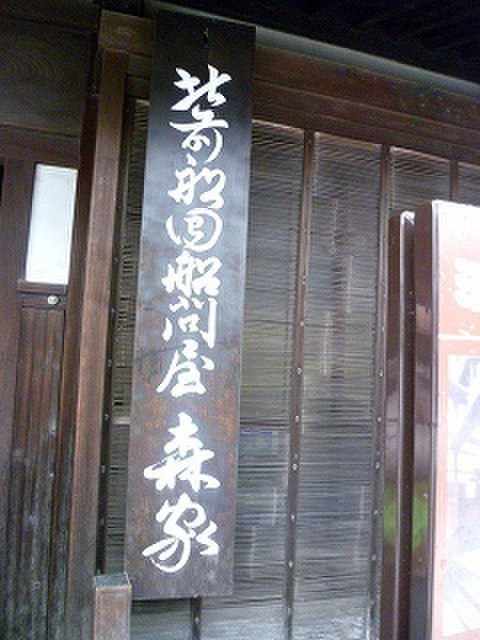 北前船廻船問屋 森家